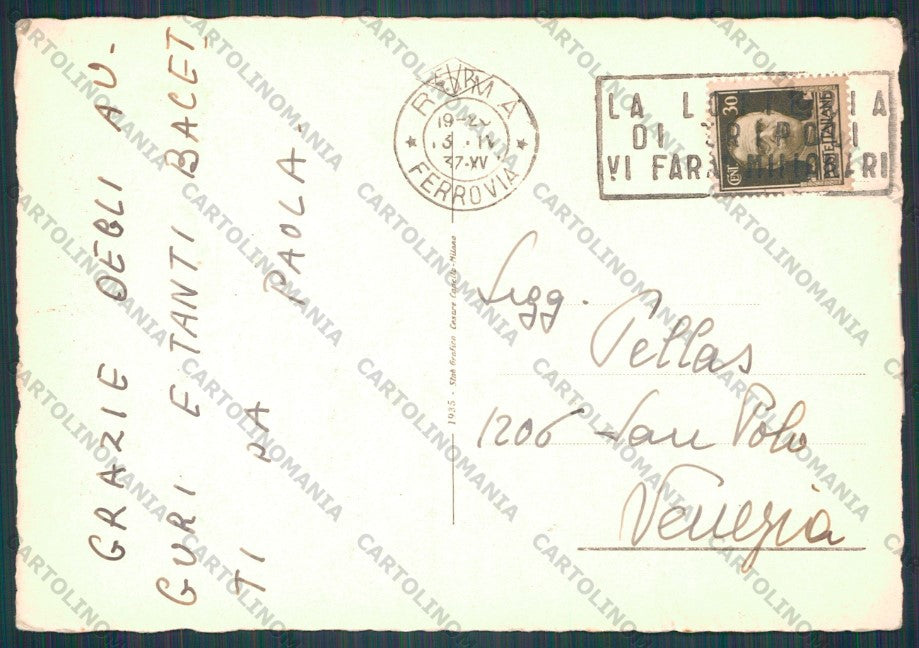 GRAZIE DEGLI AU-
GURI E TANTI BACET
TI DA PAOLA.
ROMA
19-
3 IV
37-XV
FERROVIA
LA LOTTERIA
DI TRIPOLI
VI FARÀ MILIONARI
30
CENT
POSTE ITALIANE
1935 - Stab Grafico Cesare Capello-Milano
Sigg.
Pellas
1206 San Polo
Venezia
CARTOLINOMANIA